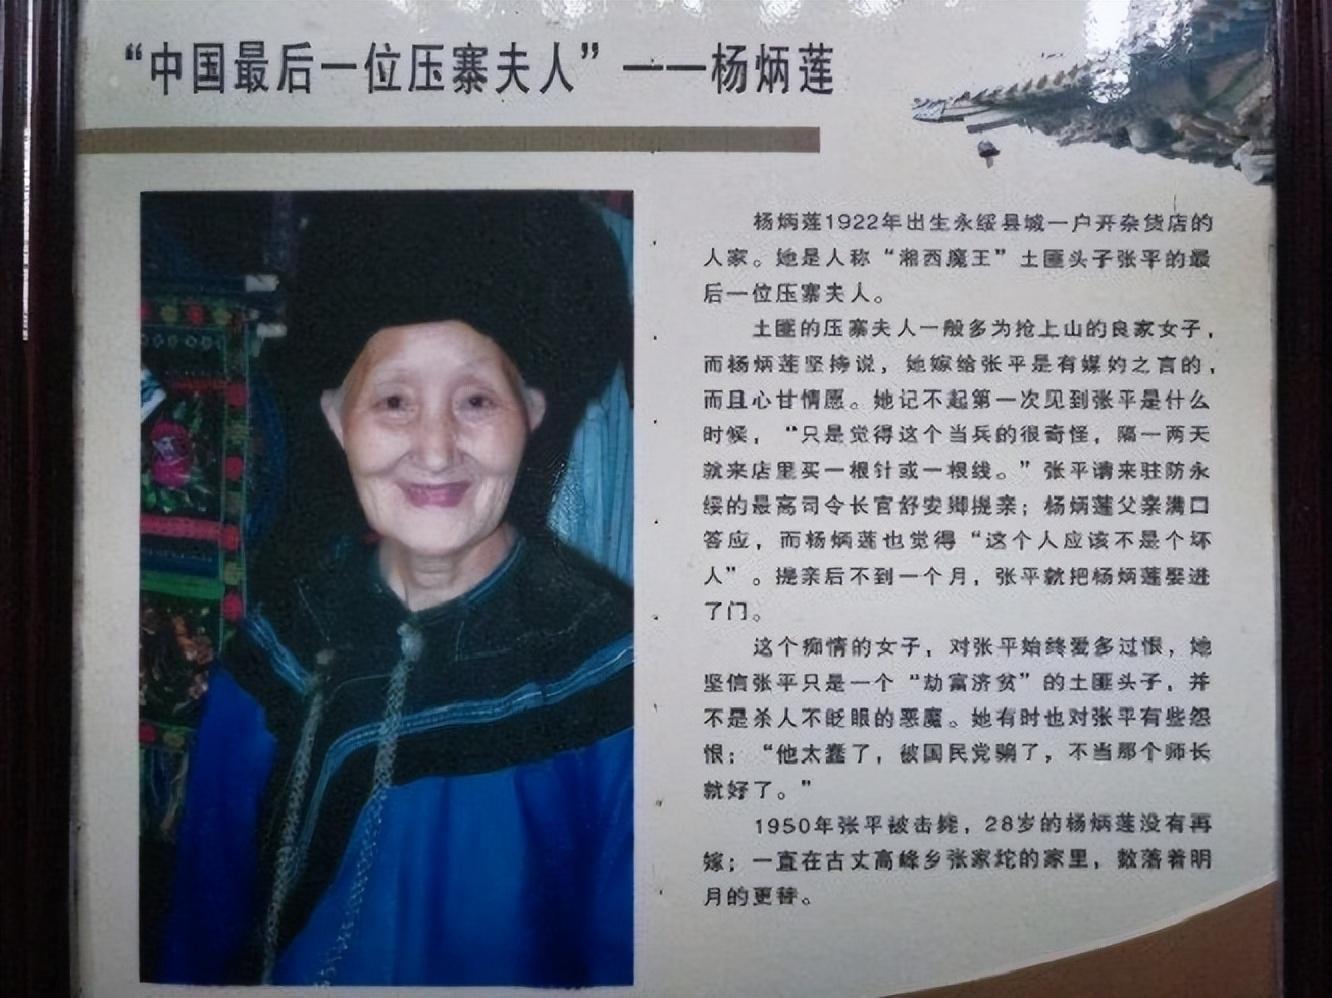 “中国最后一位压寨夫人”——杨炳莲
杨炳莲1922年出生永绥县城一户开杂货店的
人家。她是人称“湘西魔王”土匪头子张平的最
后一位压寨夫人。
土匪的压寨夫人一般多为抢上山的良家女子，
而杨炳莲坚持说，她嫁给张平是有媒妁之言的，
而且心甘情愿。她记不起第一次见到张平是什么
时候，“只是觉得这个当兵的很奇怪，隔一两天
就来店里买一根针或一根线。”张平请来驻防永
绥的最高司令长官舒安卿提亲；杨炳莲父亲满口
答应，而杨炳莲也觉得“这个人应该不是个坏
人”。提亲后不到一个月，张平就把杨炳莲娶进
了门。
这个痴情的女子，对张平始终爱多过恨，她
坚信张平只是一个“劫富济贫”的土匪头子，并
不是杀人不眨眼的恶魔。她有时也对张平有些怨
恨；“他太蠢了，被国民党骗了，不当那个师长
就好了。”
1950年张平被击毙，28岁的杨炳莲没有再
嫁；一直在古丈高峰乡张家坨的家里，数落着明
月的更替。